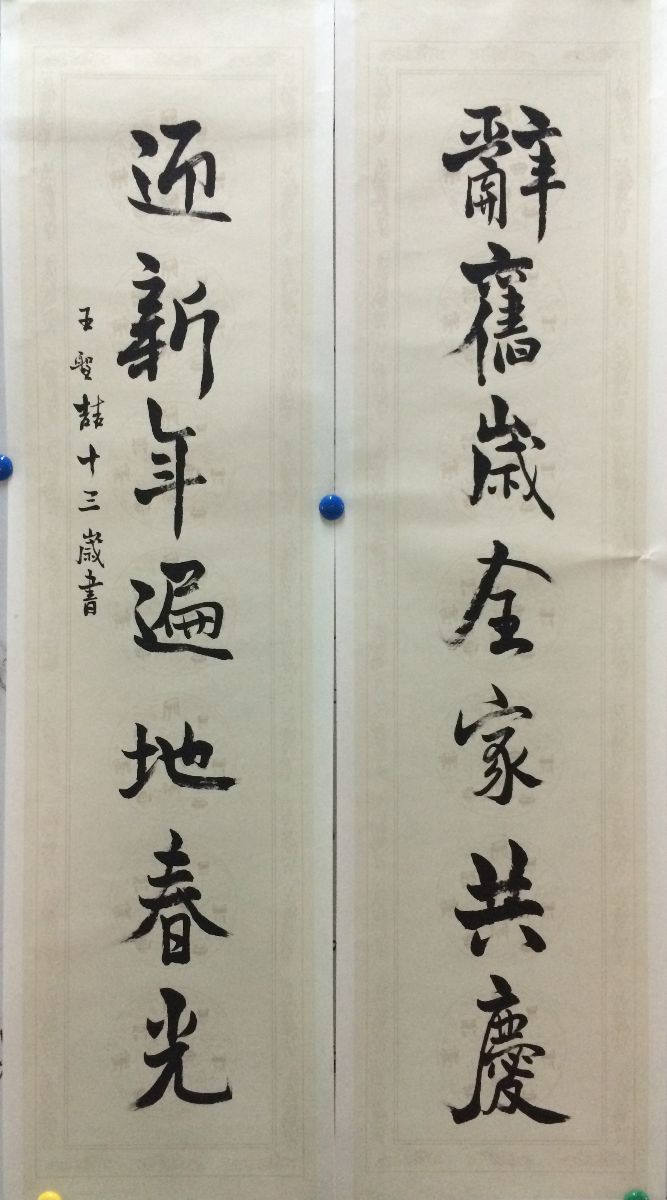 辭舊歲全家共慶
迎新年遍地春光
王聖喆十三歲書